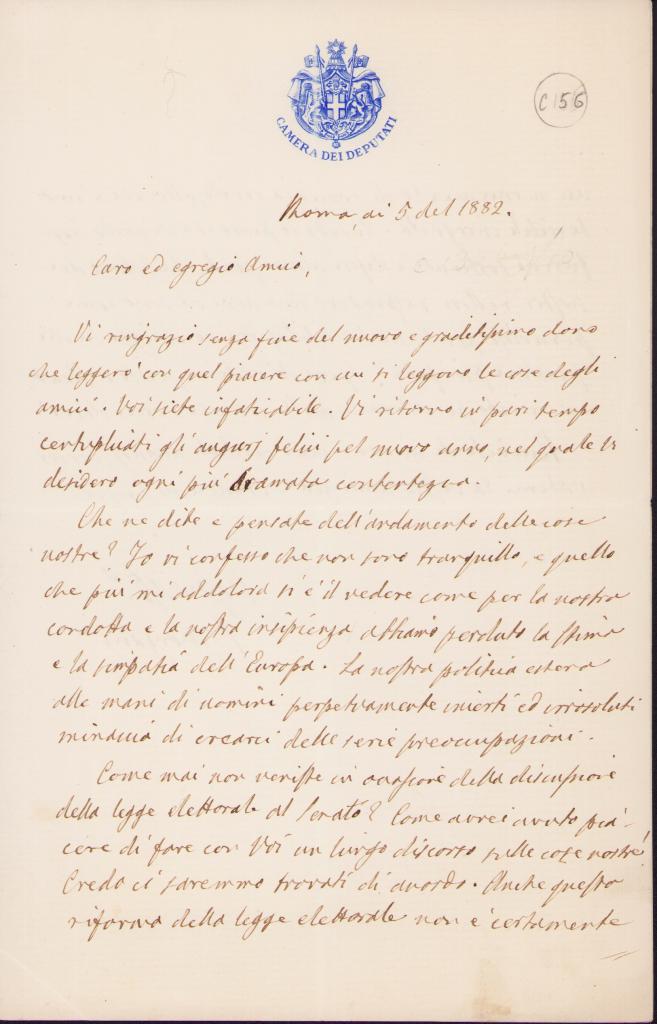 C 156
CAMERA DEI DEPUTATI
Roma, ai 5 del 1882.
Caro ed egregio Amico,
Vi ringrazio senza fine del nuovo e graditissimo dono
che leggerò con quel piacere con cui si leggono le cose degli
amici. Voi siete infaticabile. Vi ritorno in pari tempo
centuplicati gli augurj felici pel nuovo anno, nel quale vi
desidero ogni più bramata contentezza.
Che ne dite e pensate dell'andamento delle cose
nostre? Io vi confesso che non sono tranquillo, e quello
che più mi addolora si è il vedere come per la nostra
condotta e la nostra insipienza abbiamo perduto la stima
e la simpatia dell'Europa. La nostra politica estera
alle mani di uomini perpetuamente incerti ed irrisoluti
minaccia di crearci delle serie preoccupazioni.
Come mai non veniste in occasione della discussione
della legge elettorale al Senato? Come avrei avuto pia-
cere di fare con Voi un lungo discorso sulle cose nostre!
Credo ci saremmo trovati di accordo. Anche questa
riforma della legge elettorale non è certamente